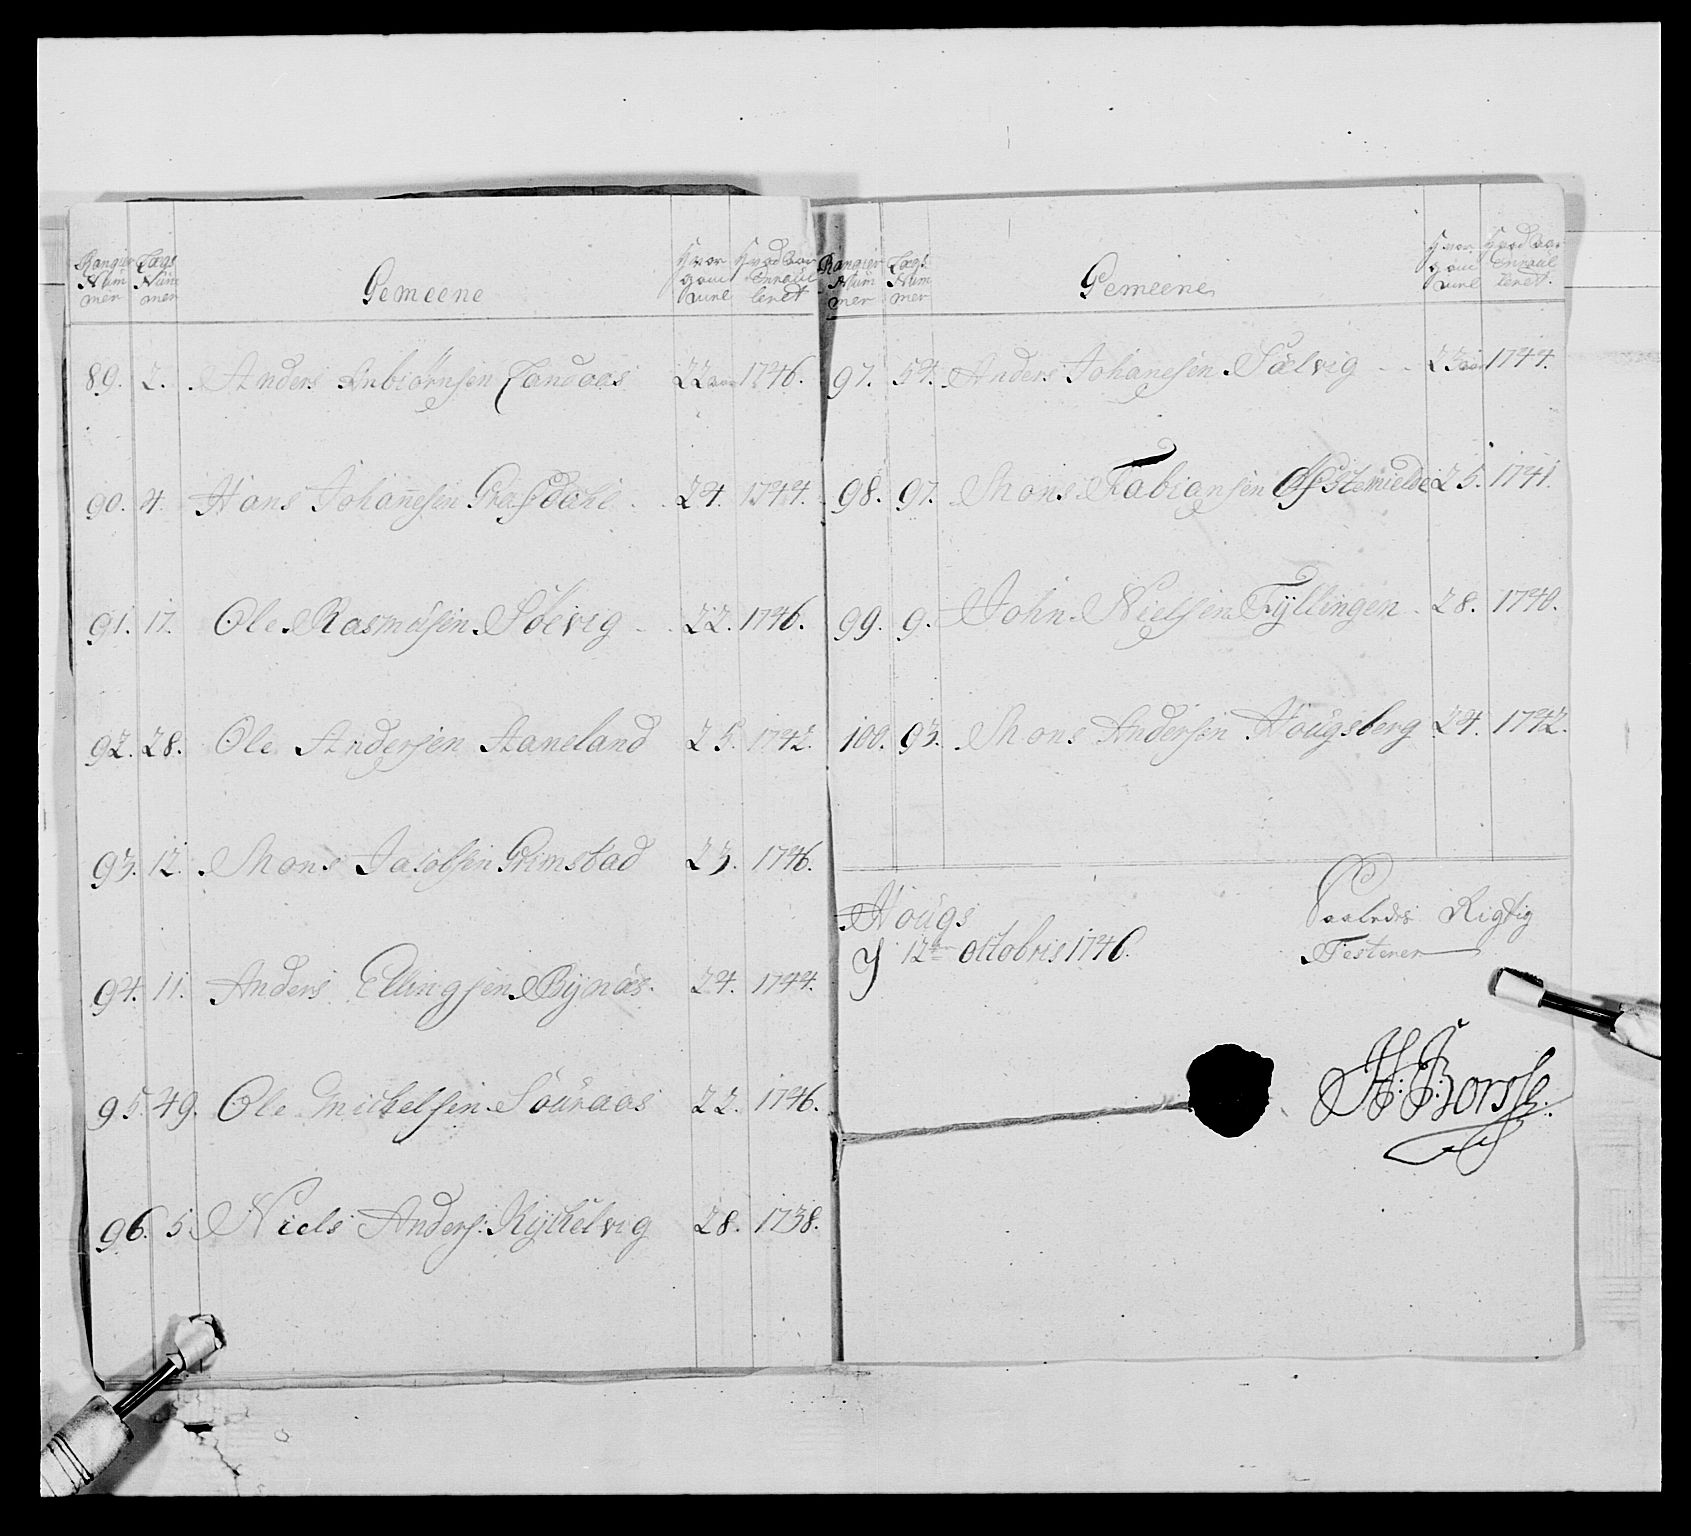 Rangier Nummer Lægs Nummer Gemeene Hvor gam̄el Hvad Aar Enroulleret
89. 2. Anders Anbiörnsen Landaas 22 aar 1746.
90. 4. Hans Johan̄esen Grasdahl 24. 1744.
91. 17. Ole Rasmusen Söevig 22. 1746.
92. 28. Ole Andersen Aaneland 25. 1742.
93. 12. Mons Jacobsen Grimstad 23. 1746.
94. 11. Anders Ellingsen Bynæs 24. 1744.
95. 49. Ole Michelsen Souraas 22. 1746.
96. 5. Niels Anders: Kykelvig 28. 1738.
Rangier Nummer Lægs Nummer Gemeene Hvor gam̄el Hvad Aar Enroulleret.
97. 54. Anders Johanesen Sælvig 23 aar 1744.
98. 97. Mons Fabiansen 25. 1741.
99. 9. John Nielsen Fyllingen 28. 1740.
100. 93. Mons Andersen Hougsberg 24. 1742.
Hougs Saaledes Rigtig
12te Octobris 1746. Testerer
H: J: Borsse